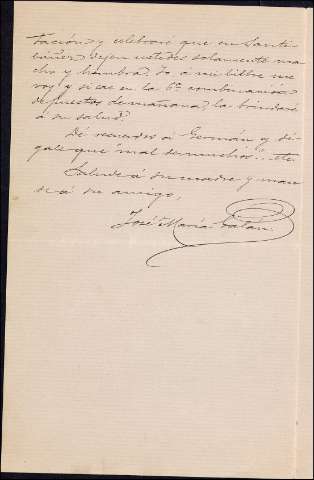 tación y celebraré que en Santi-
báñez dejen ustedes solamente ma-
cho y hembra. Yo á mi bilbo me
voy! y si cae en la 6ª combinación
de puestos de mañana, la brindaré
á su salud.
Dé recuerdos á Germán y dí-
gale que mal de muchos... etc
Salude á su madre y man-
de á su amigo,
José María Galán